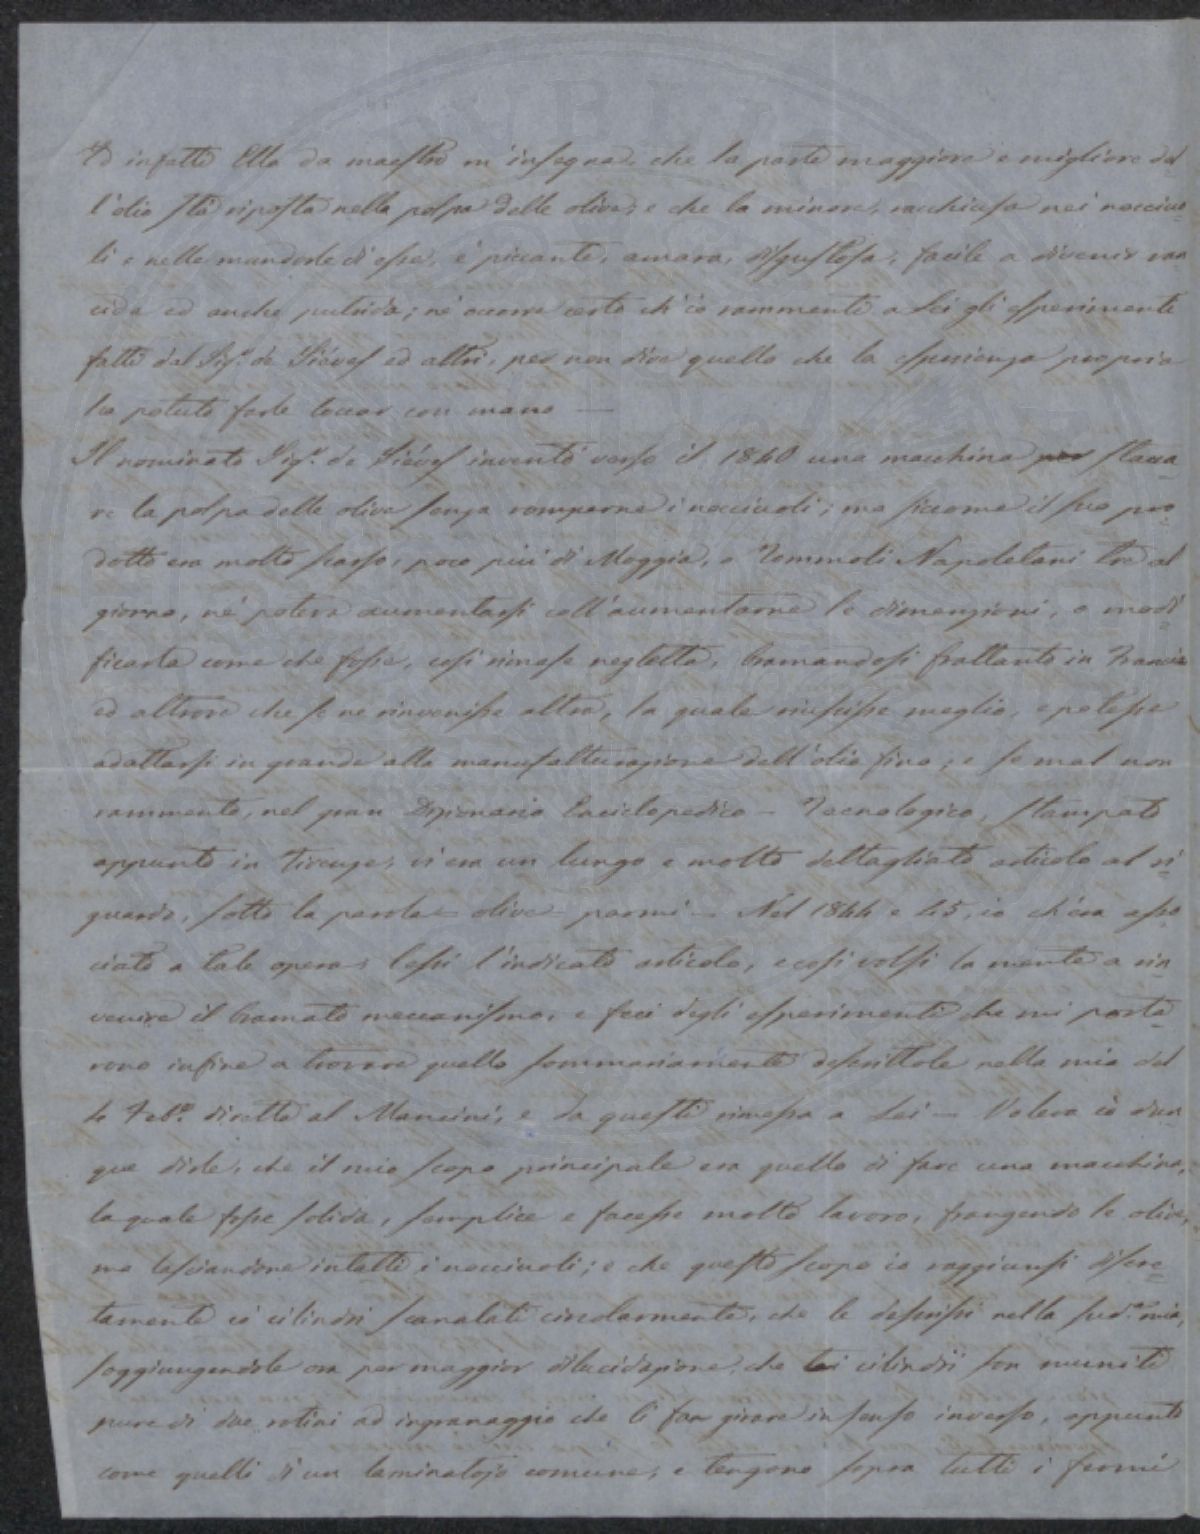 Ed infatti Ella da maestro m'insegna, che la parte maggiore e migliore del
l'olio stà riposta nella polpa delle olive, e che la minore, racchiusa nei nocciuo-
li e nelle mandorle di esse, è piccante, amara, disgustosa, facile a divenir ran
cida ed anche putrida; nè occorre certo ch'io rammenti a Lei gli esperimenti
fatti dal Sigr. de Siéves ed altri, per non dire quello che la sperienza propria
ha potuto farle toccar con mano —
Il nominato Sigr. de Siéves inventò verso il 1840 una macchina per stacca
re la polpa delle olive senza romperne i nocciuoli; ma siccome il suo pro-
dotto era molto scarso, poco più di Moggia, o Tommoli Napoletani tre al
giorno, nè poteva aumentarsi coll'aumentarne le dimenzioni, o modi
ficarla come che fosse, così rimase negletta, bramandosi frattanto in Francia
ed altrove che se ne rinvenisse altra, la quale riuscisse meglio, e potesse
adattarsi in grande alla manufatturazione dell'olio fino; e se mal non
rammento, nel gran Dizionario Enciclopedico - Tecnologico, stampato
appunto in Firenze, vi era un lungo e molto dettagliato articolo al ri-
guardo, sotto la parola - olive - parmi - Nel 1844 e 45, io ch'era asso
ciato a tale opera, lessi l'indicato articolo, e così volsi la mente a rin
venire il bramato meccanismo, e feci degli esperimenti che mi porta-
rono infine a trovare quello sommariamente descrittole nella mia del
4 Febo. diretta al Mancini, e da questi rimessa a Lei — Voleva io dun
que dirle, che il mio scopo principale era quello di fare una macchina,
la quale fosse solida, semplice e facesse molto lavoro, frangendo le olive,
ma lasciandone intatti i nocciuoli; e che questo scopo io raggiunsi discre-
tamente co' cilindri scanalati circolarmente, che le descrissi nella sud.a mia,
soggiungendole ora per maggior dilucidazione, che tai cilindri son muniti
pure di due rotini ad ingranaggio che li fan girare in senso inverso, appunto
come quelli di un laminatojo comune, e tengono sopra tutti i fermi